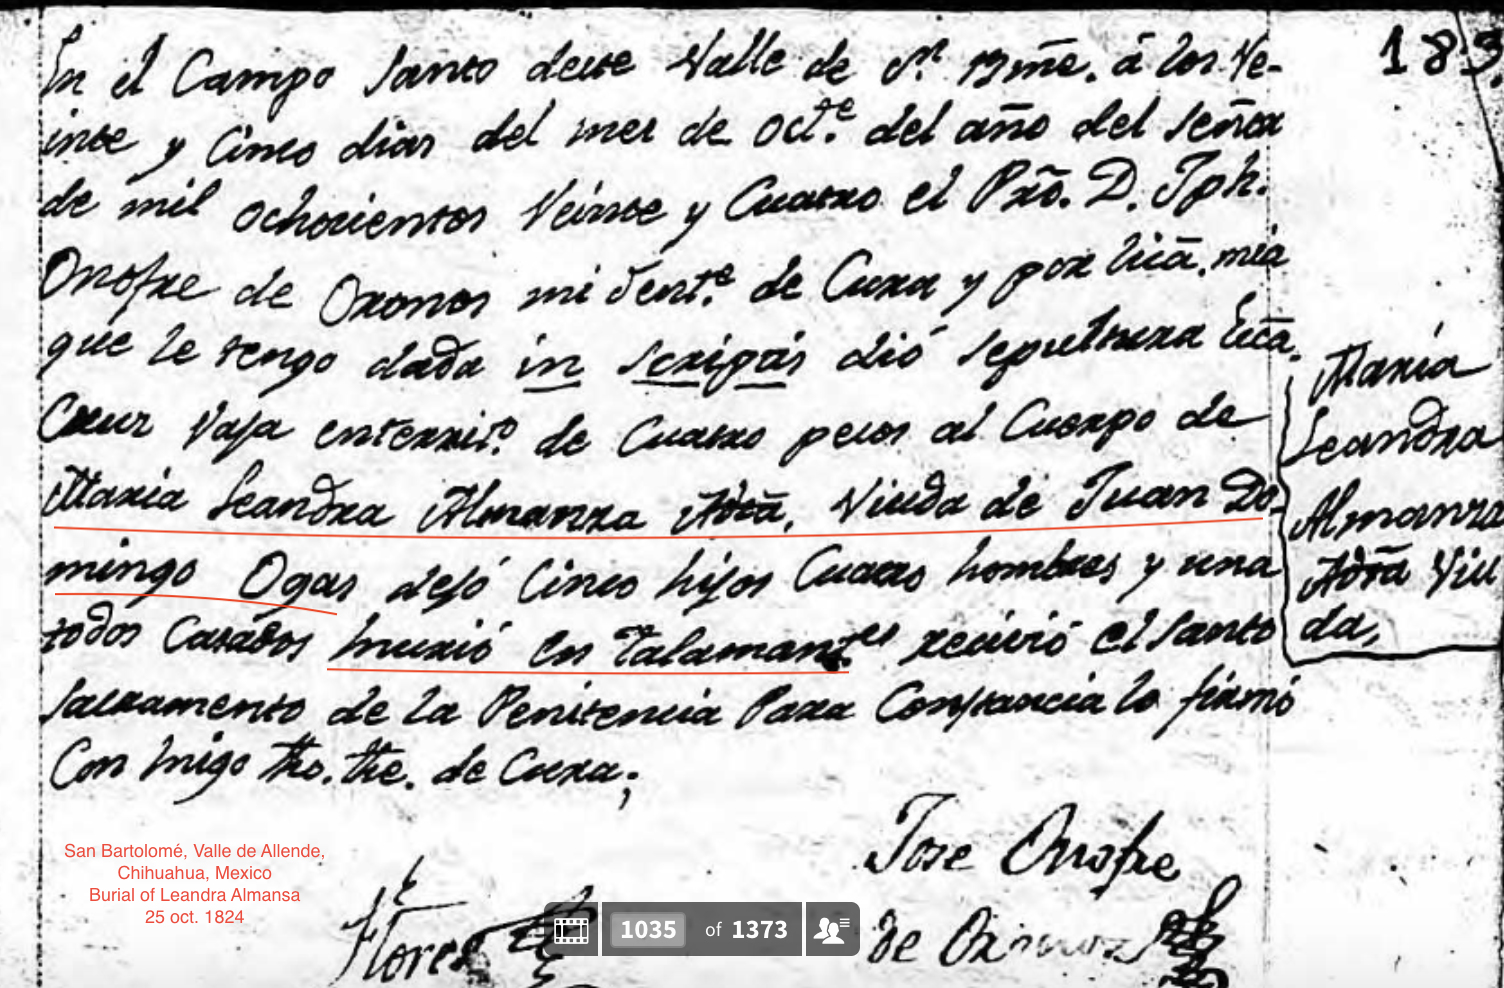 183
En el Campo Santo deste Valle de Sn. Bmẽ. á los Ve-
inte y Cinco dias del mes de Octe. del año del señor
de mil ochocientos Veinte y Cuatro el Prõ. D. Jph.
Onofre de Oronos mi Sente. de Cura y por licã. mia
que le tengo dada in scriptis dió sepultura Ecã.
Cruz Vaja enterrito. de Cuatro pesos al Cuerpo de
Maria Leandra Almanza Viuda de Juan Do-
mingo Ogas dejó Cinco hijos Cuatro hombres y una
todos Casados murió en Talamantes recivió el Santo
Sacramento de la Penitencia Para Constancia lo firmó
Con migo Tho. The. de Cura;
Maria
Leandra
Almanza
Viu
da,
Jose Onofre
de
Flores
San Bartolomé, Valle de Allende,
Chihuahua, Mexico
Burial of Leandra Almansa
25 oct. 1824
1035 of 1373